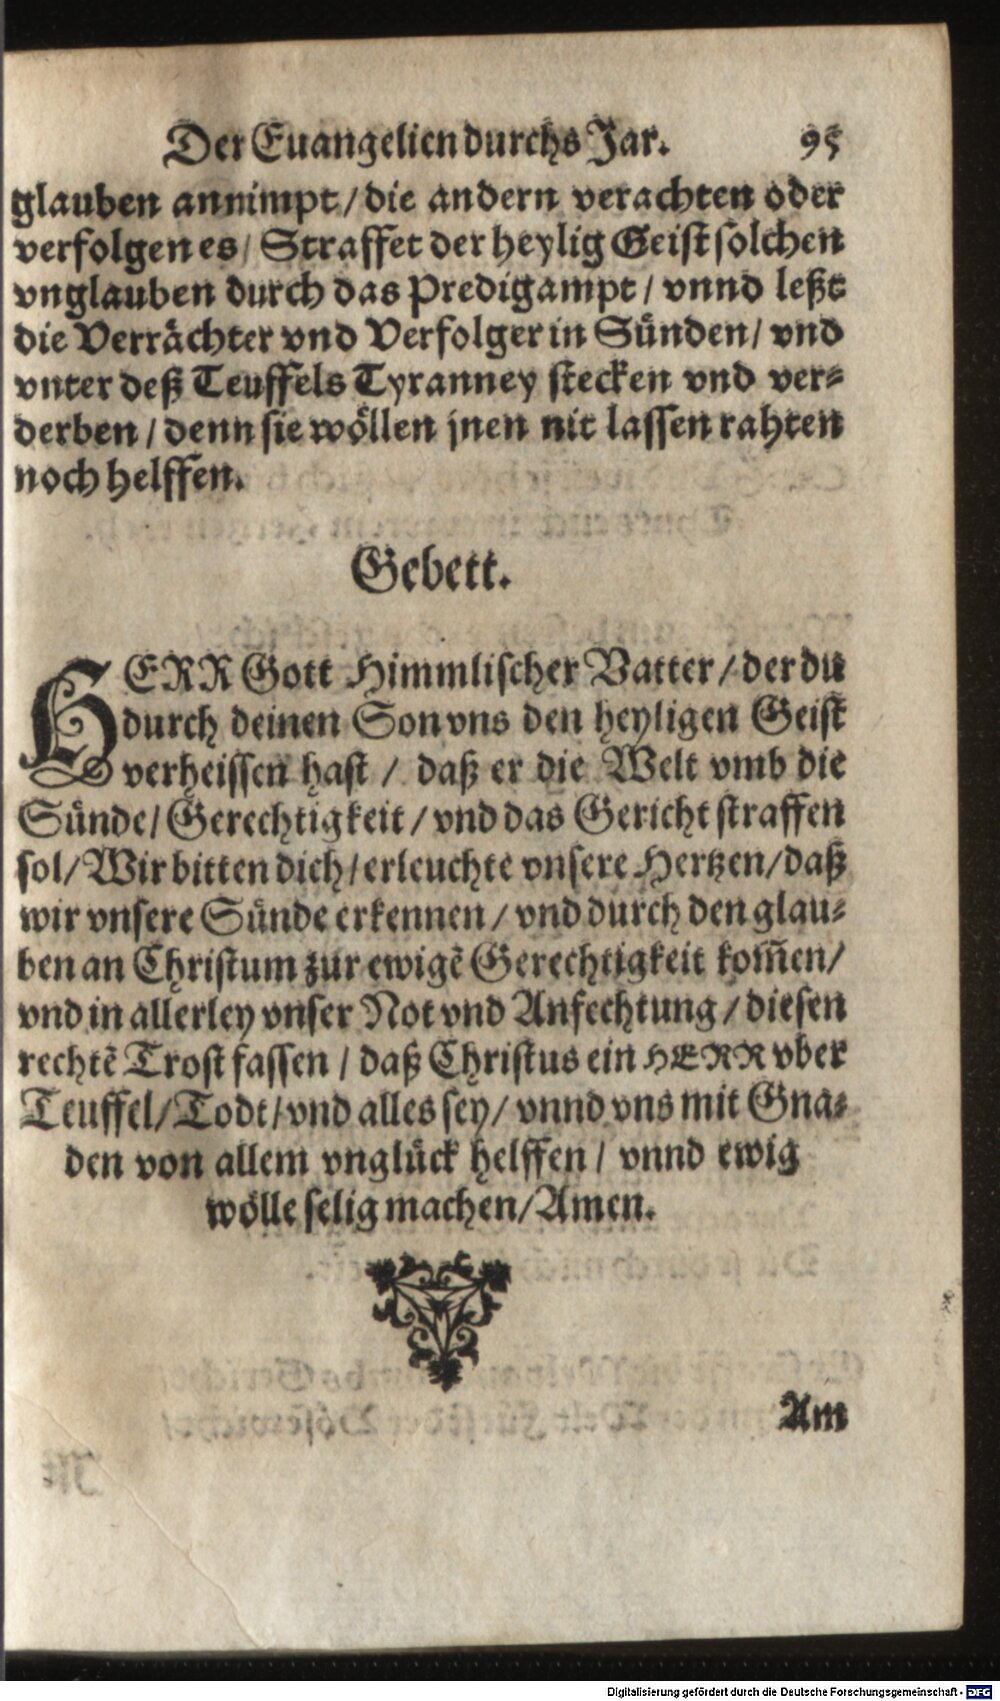 Der Euangelien durchs Jar. 95
glauben annimpt / die andern verachten oder
verfolgen es / Straffet der heylig Geist solchen
vnglauben durch das Predigampt / vnnd leßt
die Verrächter vnd Verfolger in Sünden / vnd
vnter deß Teuffels Tyranney stecken vnd ver-
derben / denn sie wöllen jnen nit lassen rahten
noch helffen.
Gebett.
HERR Gott Himmlischer Vatter / der du
durch deinen Son vns den heyligen Geist
verheissen hast / daß er die Welt vmb die
Sünde / Gerechtigkeit / vnd das Gericht straffen
sol / Wir bitten dich / erleuchte vnsere Hertzen / daß
wir vnsere Sünde erkennen / vnd durch den glau-
ben an Christum zur ewigẽ Gerechtigkeit kom̃en /
vnd in allerley vnser Not vnd Anfechtung / diesen
rechtẽ Trost fassen / daß Christus ein HERR vber
Teuffel / Todt / vnd alles sey / vnnd vns mit Gna-
den von allem vnglück helffen / vnnd ewig
wölle selig machen / Amen.
Am
Digitalisierung gefördert durch die Deutsche Forschungsgemeinschaft - DFG